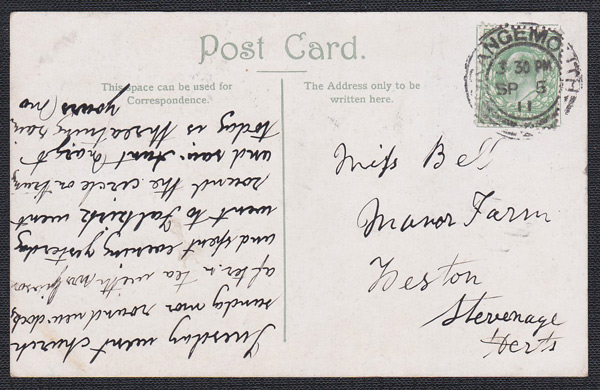 Post Card.
This space can be used for
Correspondence.
The Address only to be
written here.
ANGEMOUTH
3 30 PM
SP 5
11
Miss Bell
Manor Farm
Weston
Stevenage
Herts
Tuesday went church
sunday mor round new dock
after.n tea with Mrs
and spent evening yesterday
went to Falkirk went
round the circle on tram
and rain.
today is threatning rain
yours Mo